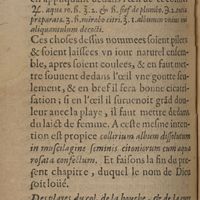 ʒ. aquæ ro. ℥. 2. & ß. sief de plumbo. ʒ. 2. tutiæ
præparatæ. ʒ. ß. mirabo. citri. ʒ. 1. albumen vnius oui
aliquantulum decocti.
Ces choses dessus nommees soient pilees
& soient laissees vn iour naturel ensem-
ble, apres soient coulees, & en faut met-
tre souuent dedans l'œil vne goutte seu-
lement, & en bref il sera bonne cicati-
sation; si en l'œil il suruenoit grād dou-
leur auec la playe, il faut mettre dedans
du laict de femme. A ceste mesme inten-
tion est propice collirium album dissolutum
in muscilagine seminis citoniorum cum aqua
rosata confectum. Et faisons la fin du pre-
sent chapitre, duquel le nom de Dieu
soit loüé.
Des playes du col, de la bouche, & de la gor